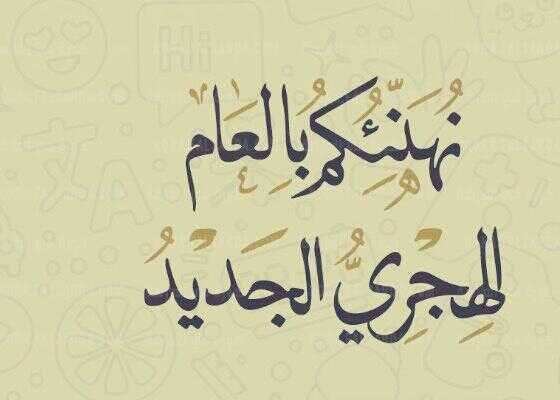 نُهَنِّئُكُم بِالعَام
الهِجْرِيُّ الجَدْيدُ
Hi